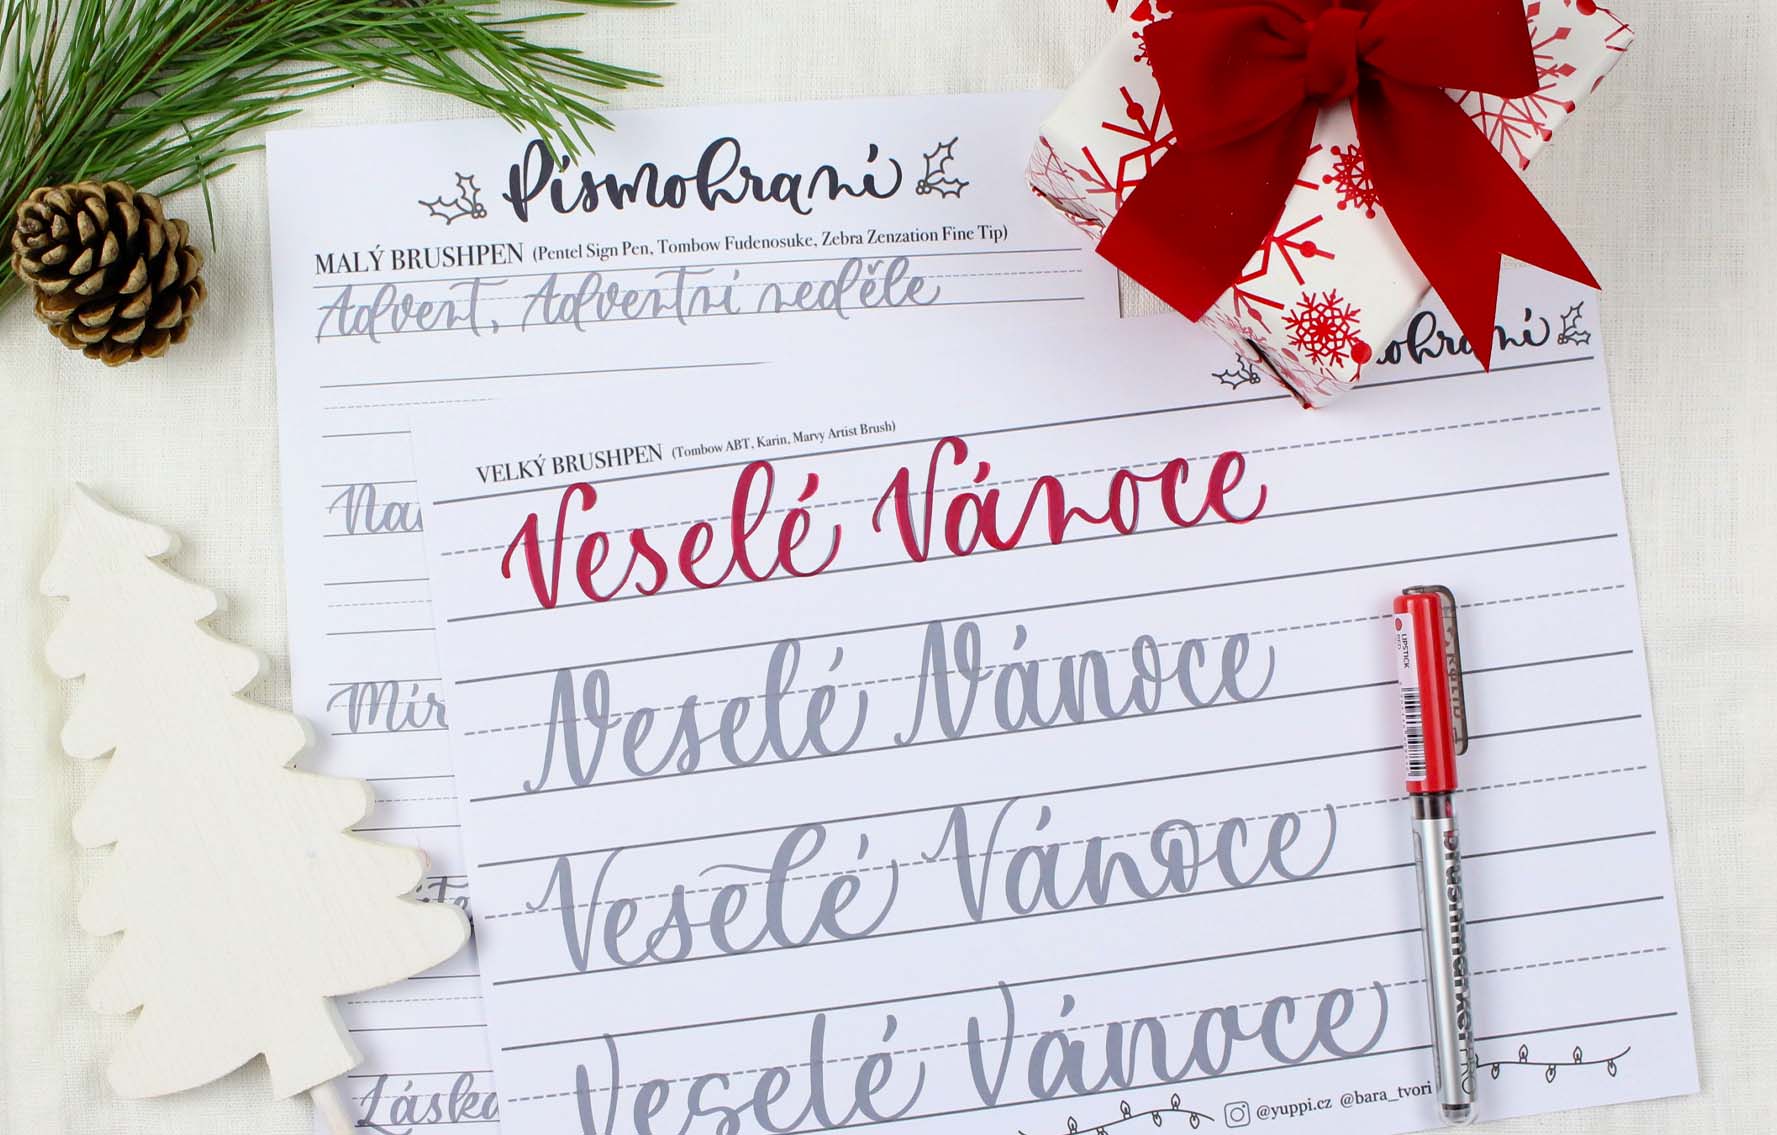 Písmohraní
MALÝ BRUSHPEN (Pentel Sign Pen, Tombow Fudenosuke, Zebra Zenzation Fine Tip)
Advent, Adventní neděle
Mír
Láska
VELKÝ BRUSHPEN (Tombow ABT, Karin, Marvy Artist Brush)
Veselé Vánoce
Veselé Vánoce
Veselé Vánoce
Veselé Vánoce
@yuppi.cz @bara_tvori
LIPSTICK RED
KARIN
brushmarker PRO